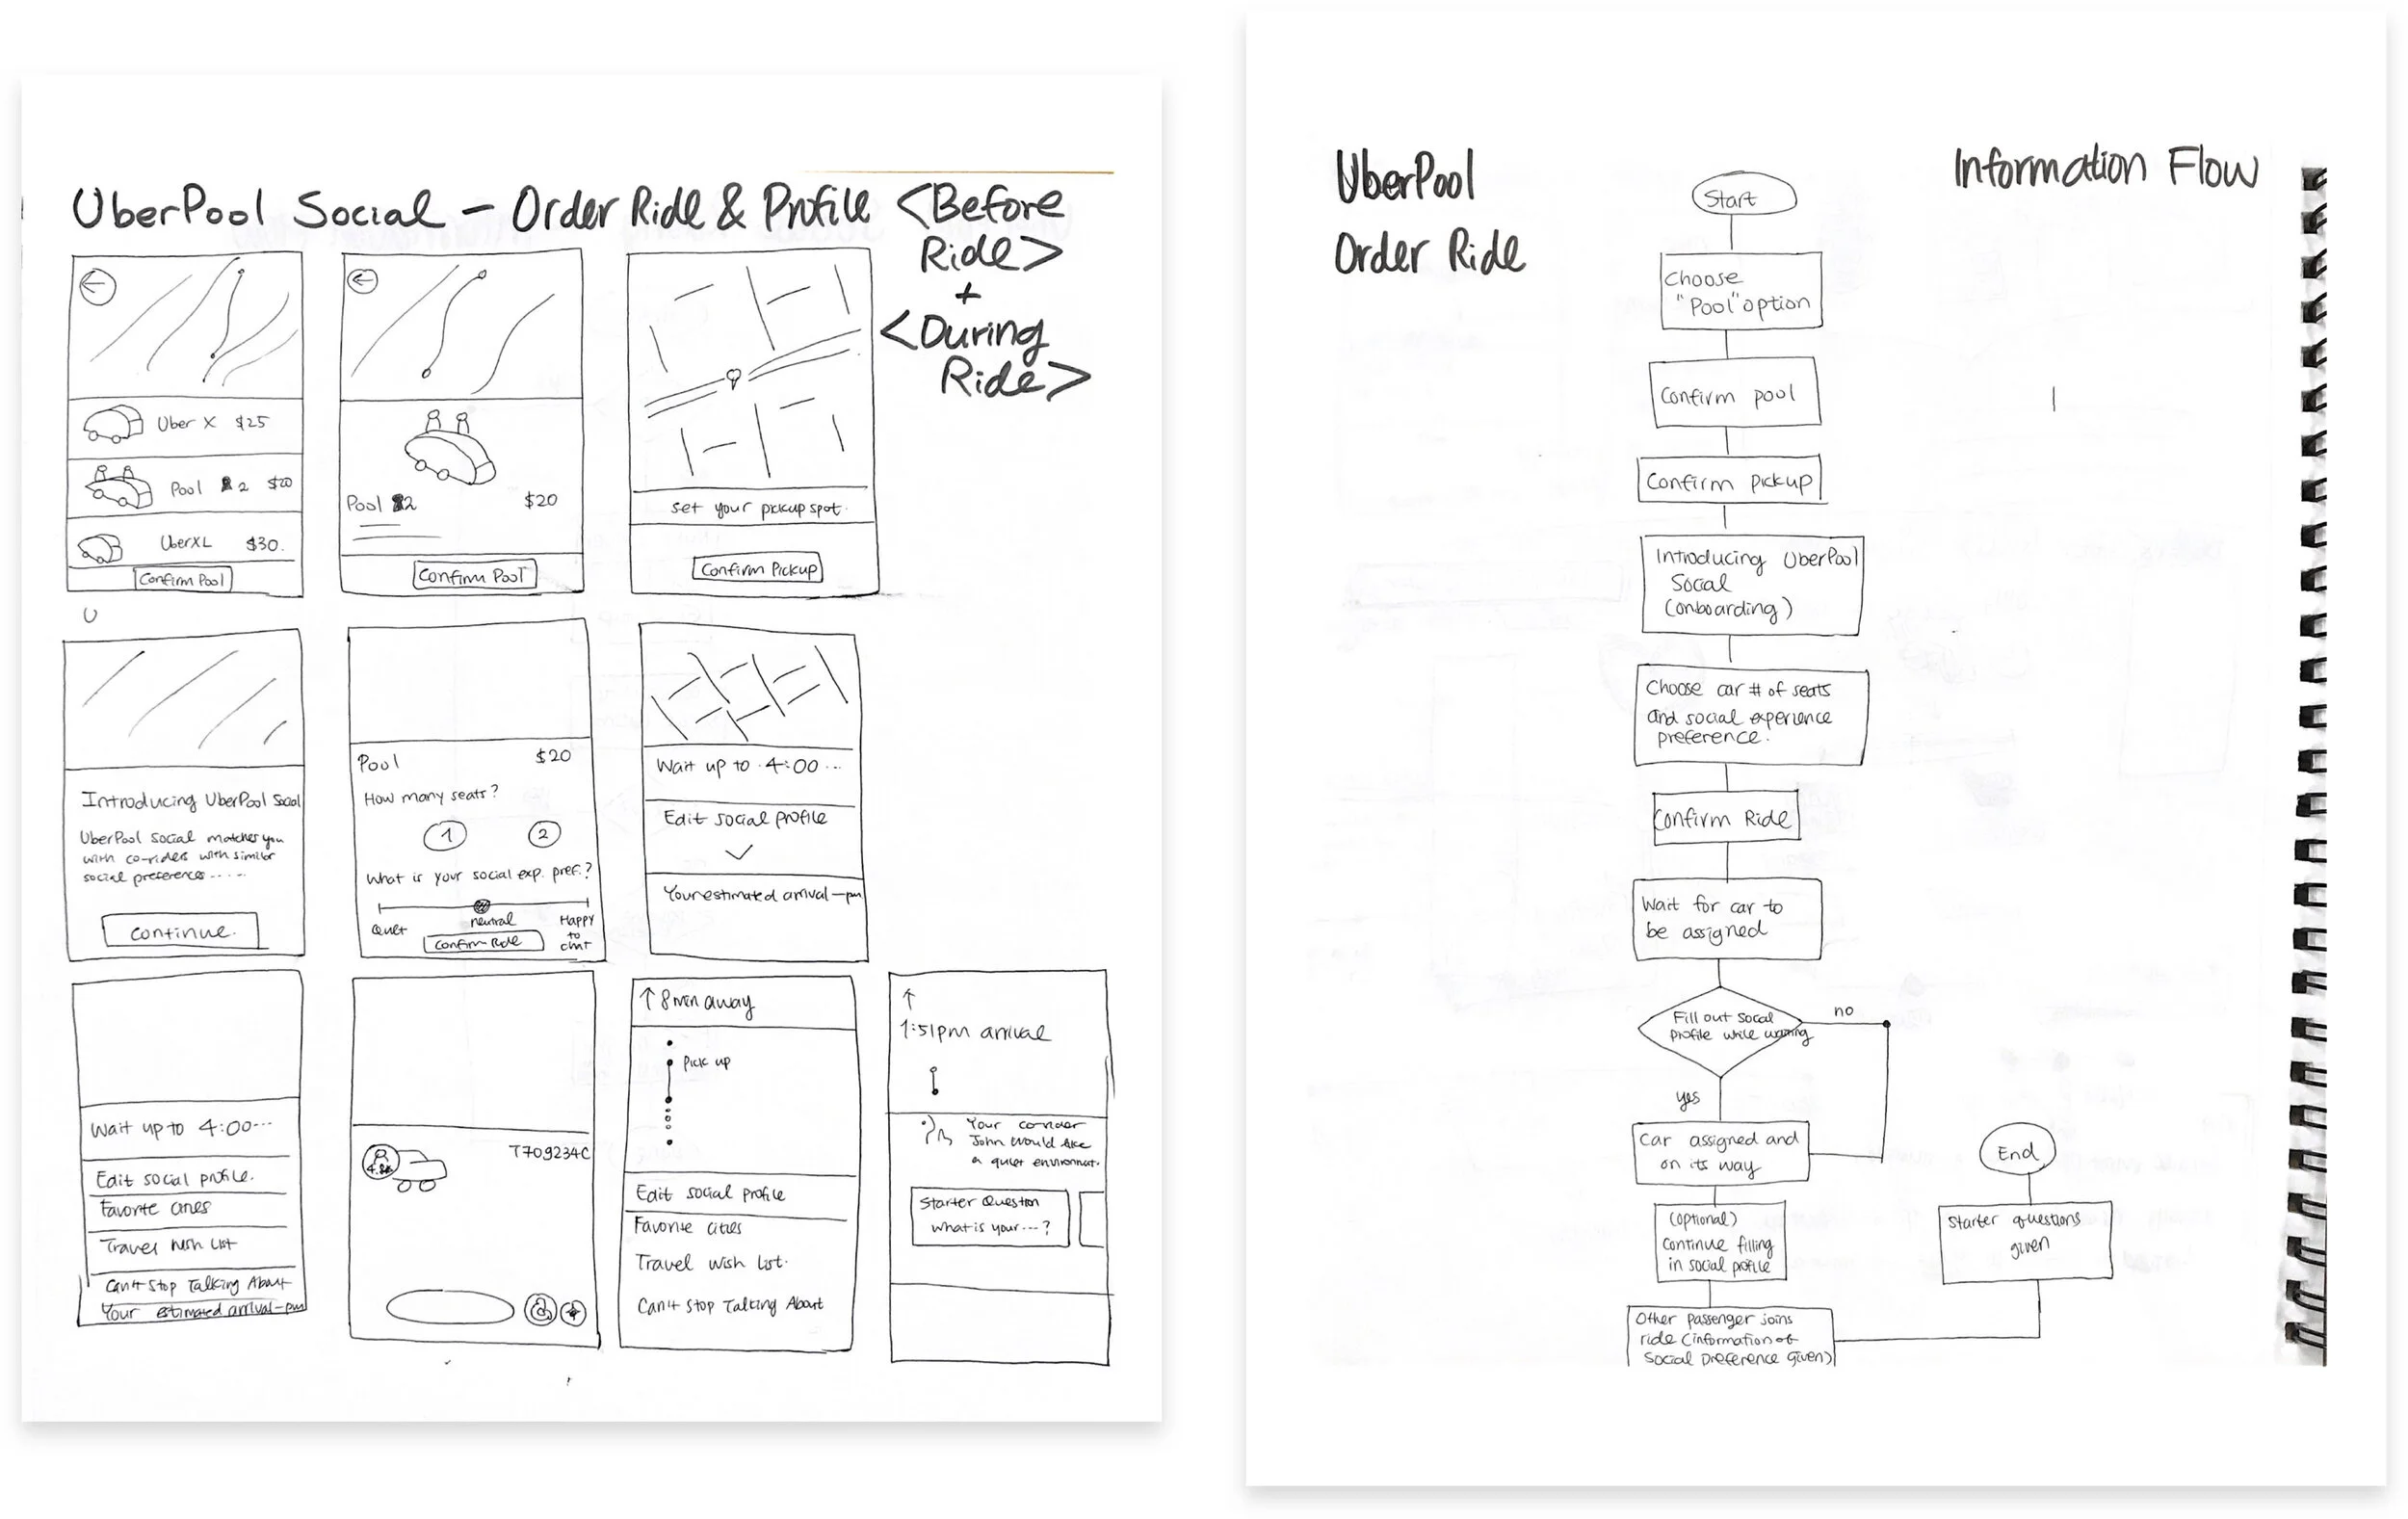 UberPool Social – Order Ride & Profile <Before
Ride>
+
<During
Ride>
Uber X $25
Pool 2 $20
UberXL $30.
Confirm Pool
Pool 2 $20
Confirm Pool
set your pickup spot.
Confirm Pickup
U
Introducing UberPool Social
UberPool Social matches you
with co-riders with similar
social preferences.....
continue.
Pool $20
How many seats?
1 2
What is your social exp. pref.?
Quiet neutral Happy
to
chat
Confirm Ride
Wait up to 4:00 ...
Edit social profile
Your estimated arrival – pm
Wait up to 4:00...
Edit social profile.
Favorite cities
Travel wish List
Can't Stop Talking About
Your estimated arrival – pm
T709234C
↑ 8 min away
Pick up
Edit social profile
Favorite cities
Travel wish List.
Can't Stop Talking About
↑
1:51pm arrival
Your co-rider
John would like
a quiet environmnt.
Starter Question
What is your ...?
UberPool
Order Ride
Information Flow
Start
Choose
"Pool" option
Confirm pool
Confirm pickup
Introducing UberPool
Social
(onboarding)
Choose car # of seats
and social experience
preference.
Confirm Ride
Wait for car to
be assigned
Fill out social
profile while waiting
no
yes
Car assigned and
on its way
(optional)
Continue filling
in social profile
Other passenger joins
ride (information of
social preference given)
Starter questions
given
End